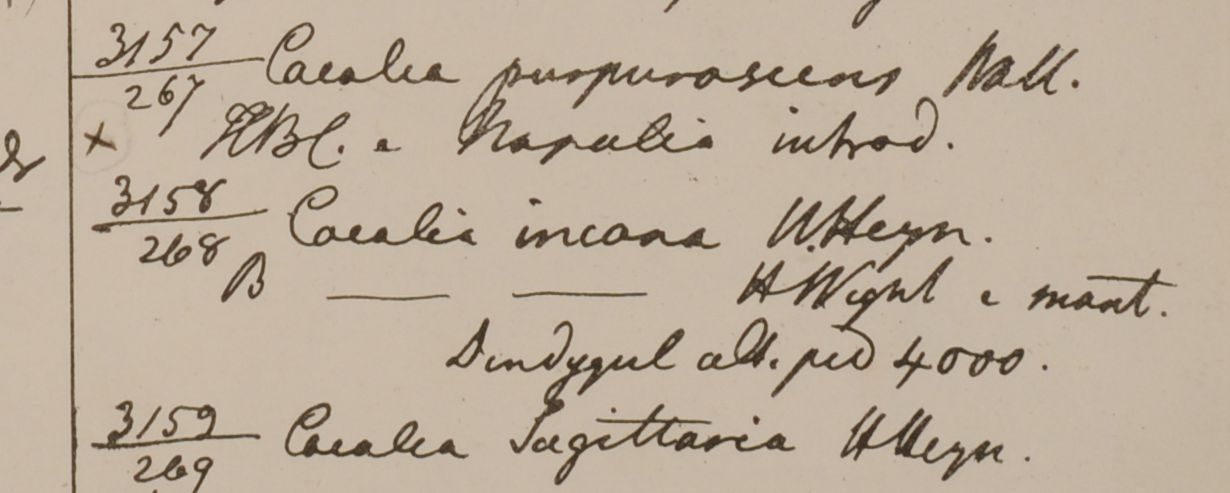 3157/267 Cacalia purpurascens Wall.
x HBC. e Napalia introd.
3158/268 Cacalia incana W. Heyn.
B — — H Wight e mont.
Dindygul alt. ped 4000.
3159/269 Cacalia Sagittaria H Heyn.